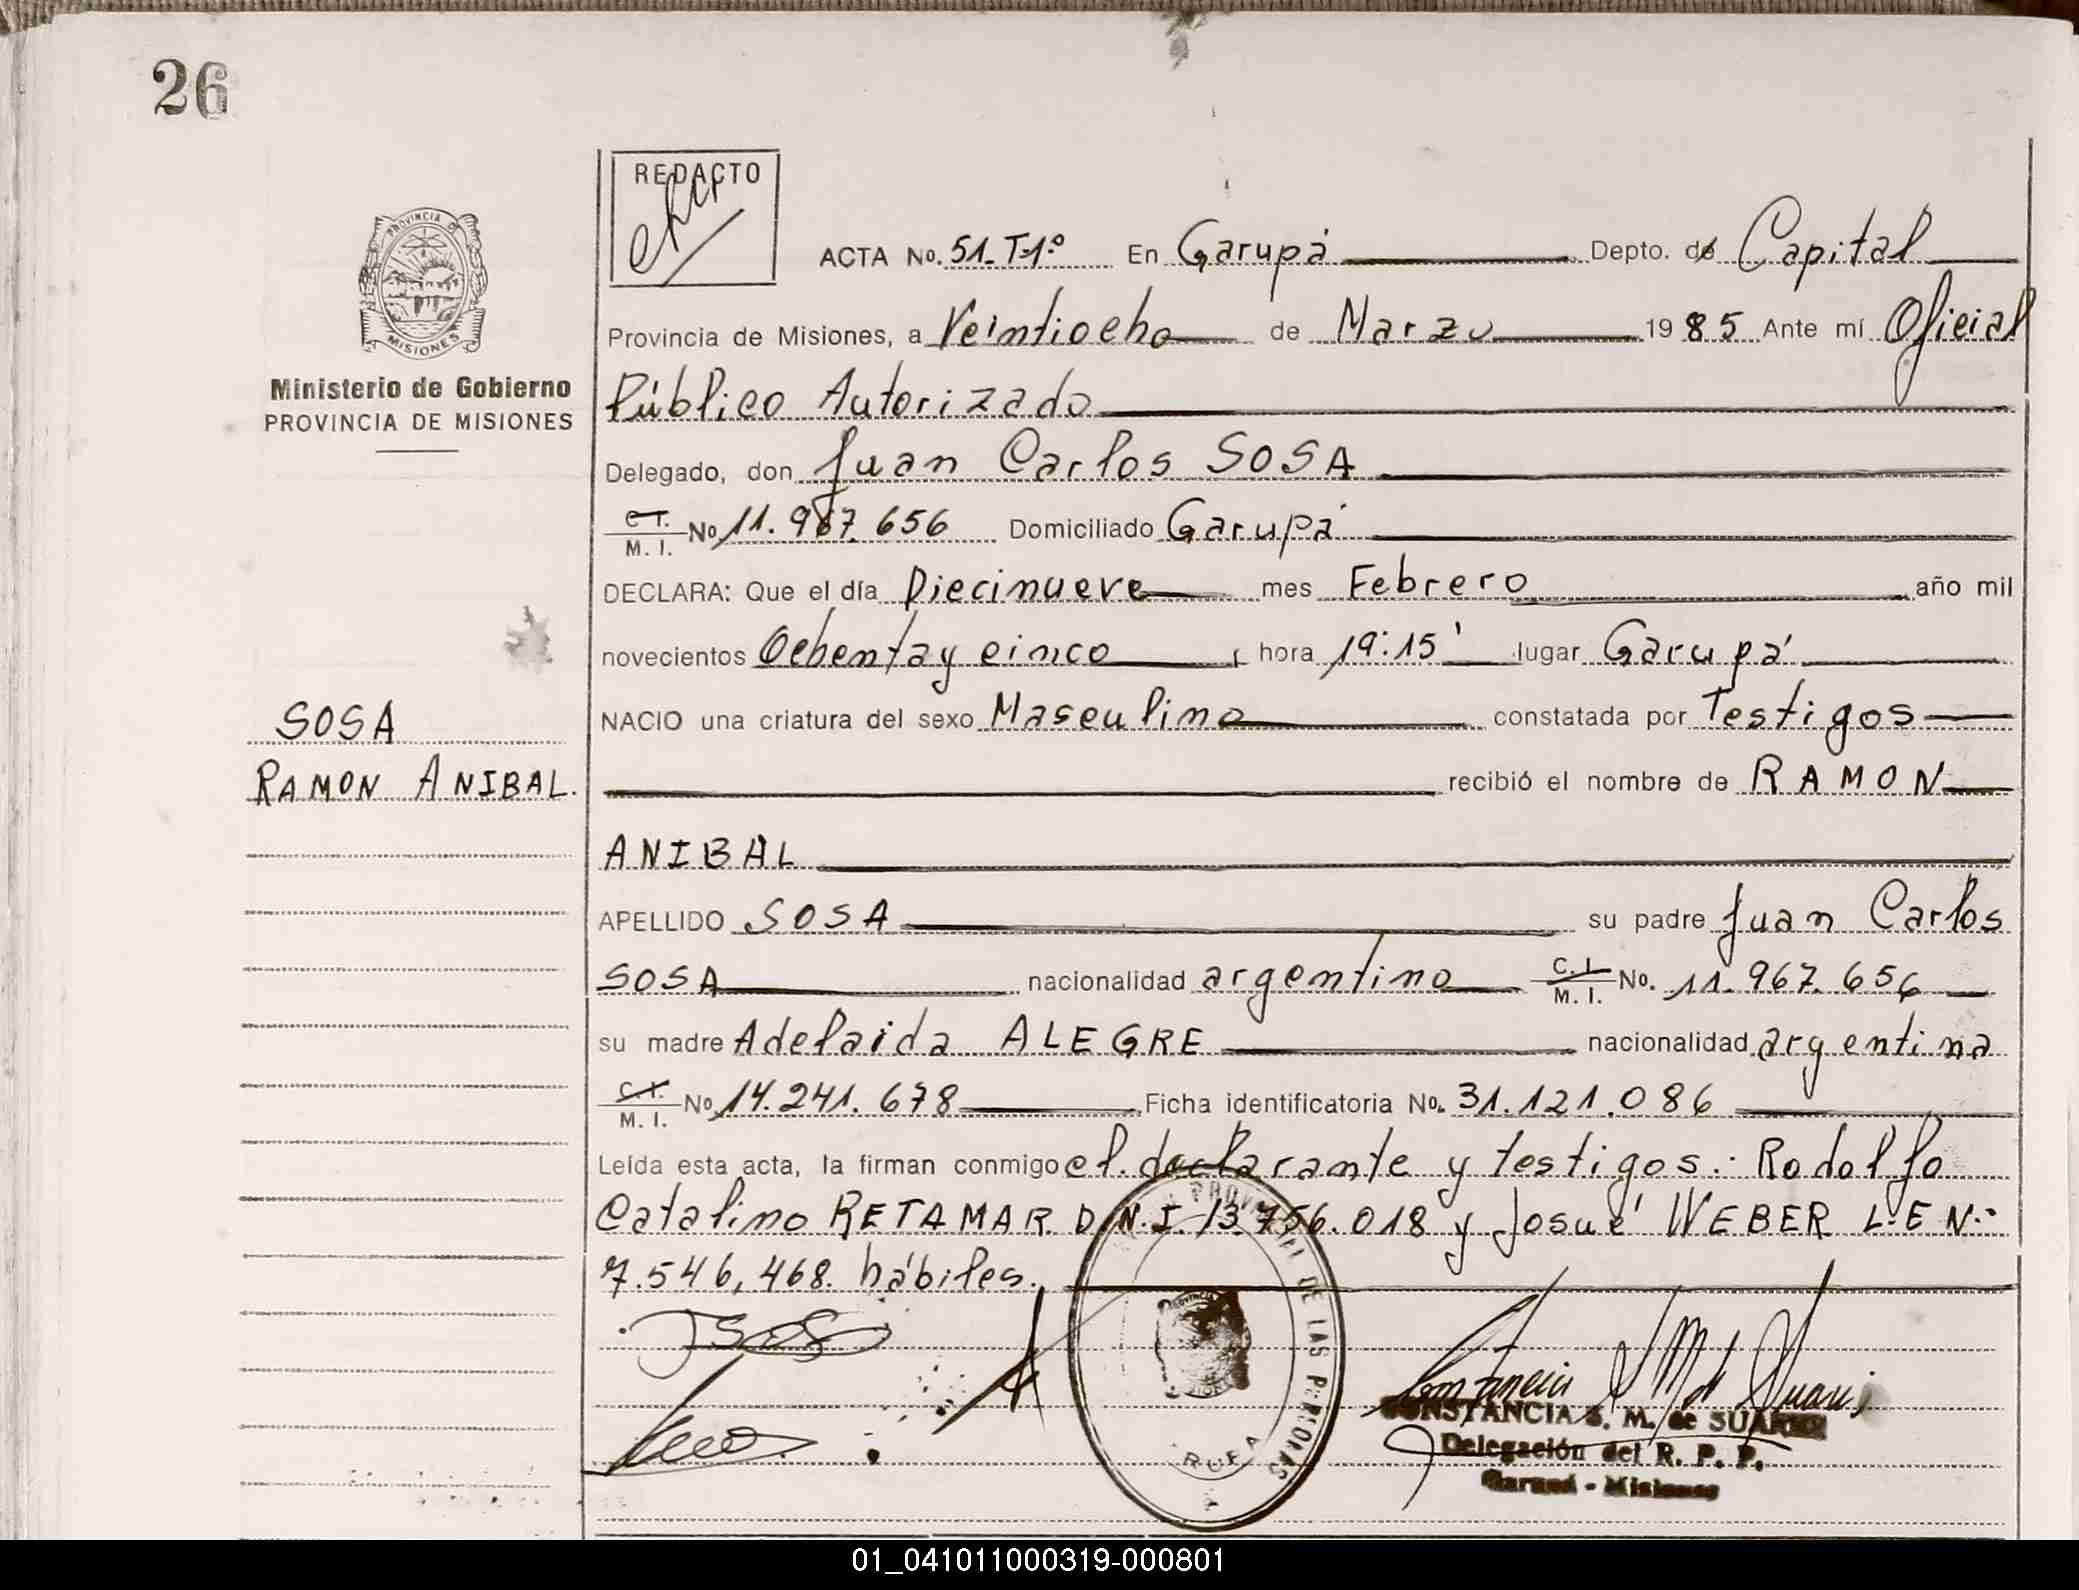 26
REDACTO
PROVINCIA DE
MISIONES
Ministerio de Gobierno
PROVINCIA DE MISIONES
ACTA No. 51-T-1º En Garupá Depto. de Capital
Provincia de Misiones, a Veintiocho de Marzo 1985 Ante mí Oficial
Público Autorizado
Delegado, don Juan Carlos SOSA
C.I. M. I. No 11.967.656 Domiciliado Garupá
DECLARA: Que el día Diecinueve mes Febrero año mil
novecientos Ochenta y cinco, hora 19:15' lugar Garupá
NACIO una criatura del sexo Masculino constatada por Testigos
recibió el nombre de RAMON
ANIBAL
SOSA
RAMON ANIBAL.
APELLIDO SOSA su padre Juan Carlos
SOSA nacionalidad argentino C.I. M. I. No. 11.967.656
su madre Adelaida ALEGRE nacionalidad argentina
C.I. M. I. No 14.241.678 Ficha identificatoria No. 31.121.086
Leída esta acta, la firman conmigo el declarante y testigos.: Rodolfo
Catalino RETAMAR D.N.I. 13.756.018 y Josué WEBER L.E N.-
7.546,468. hábiles.
DE LAS PERSONAS
CONSTANCIA S. M. de SUAREZ
Delegación del R. P. P.
Garupá - Misiones
01_041011000319-000801